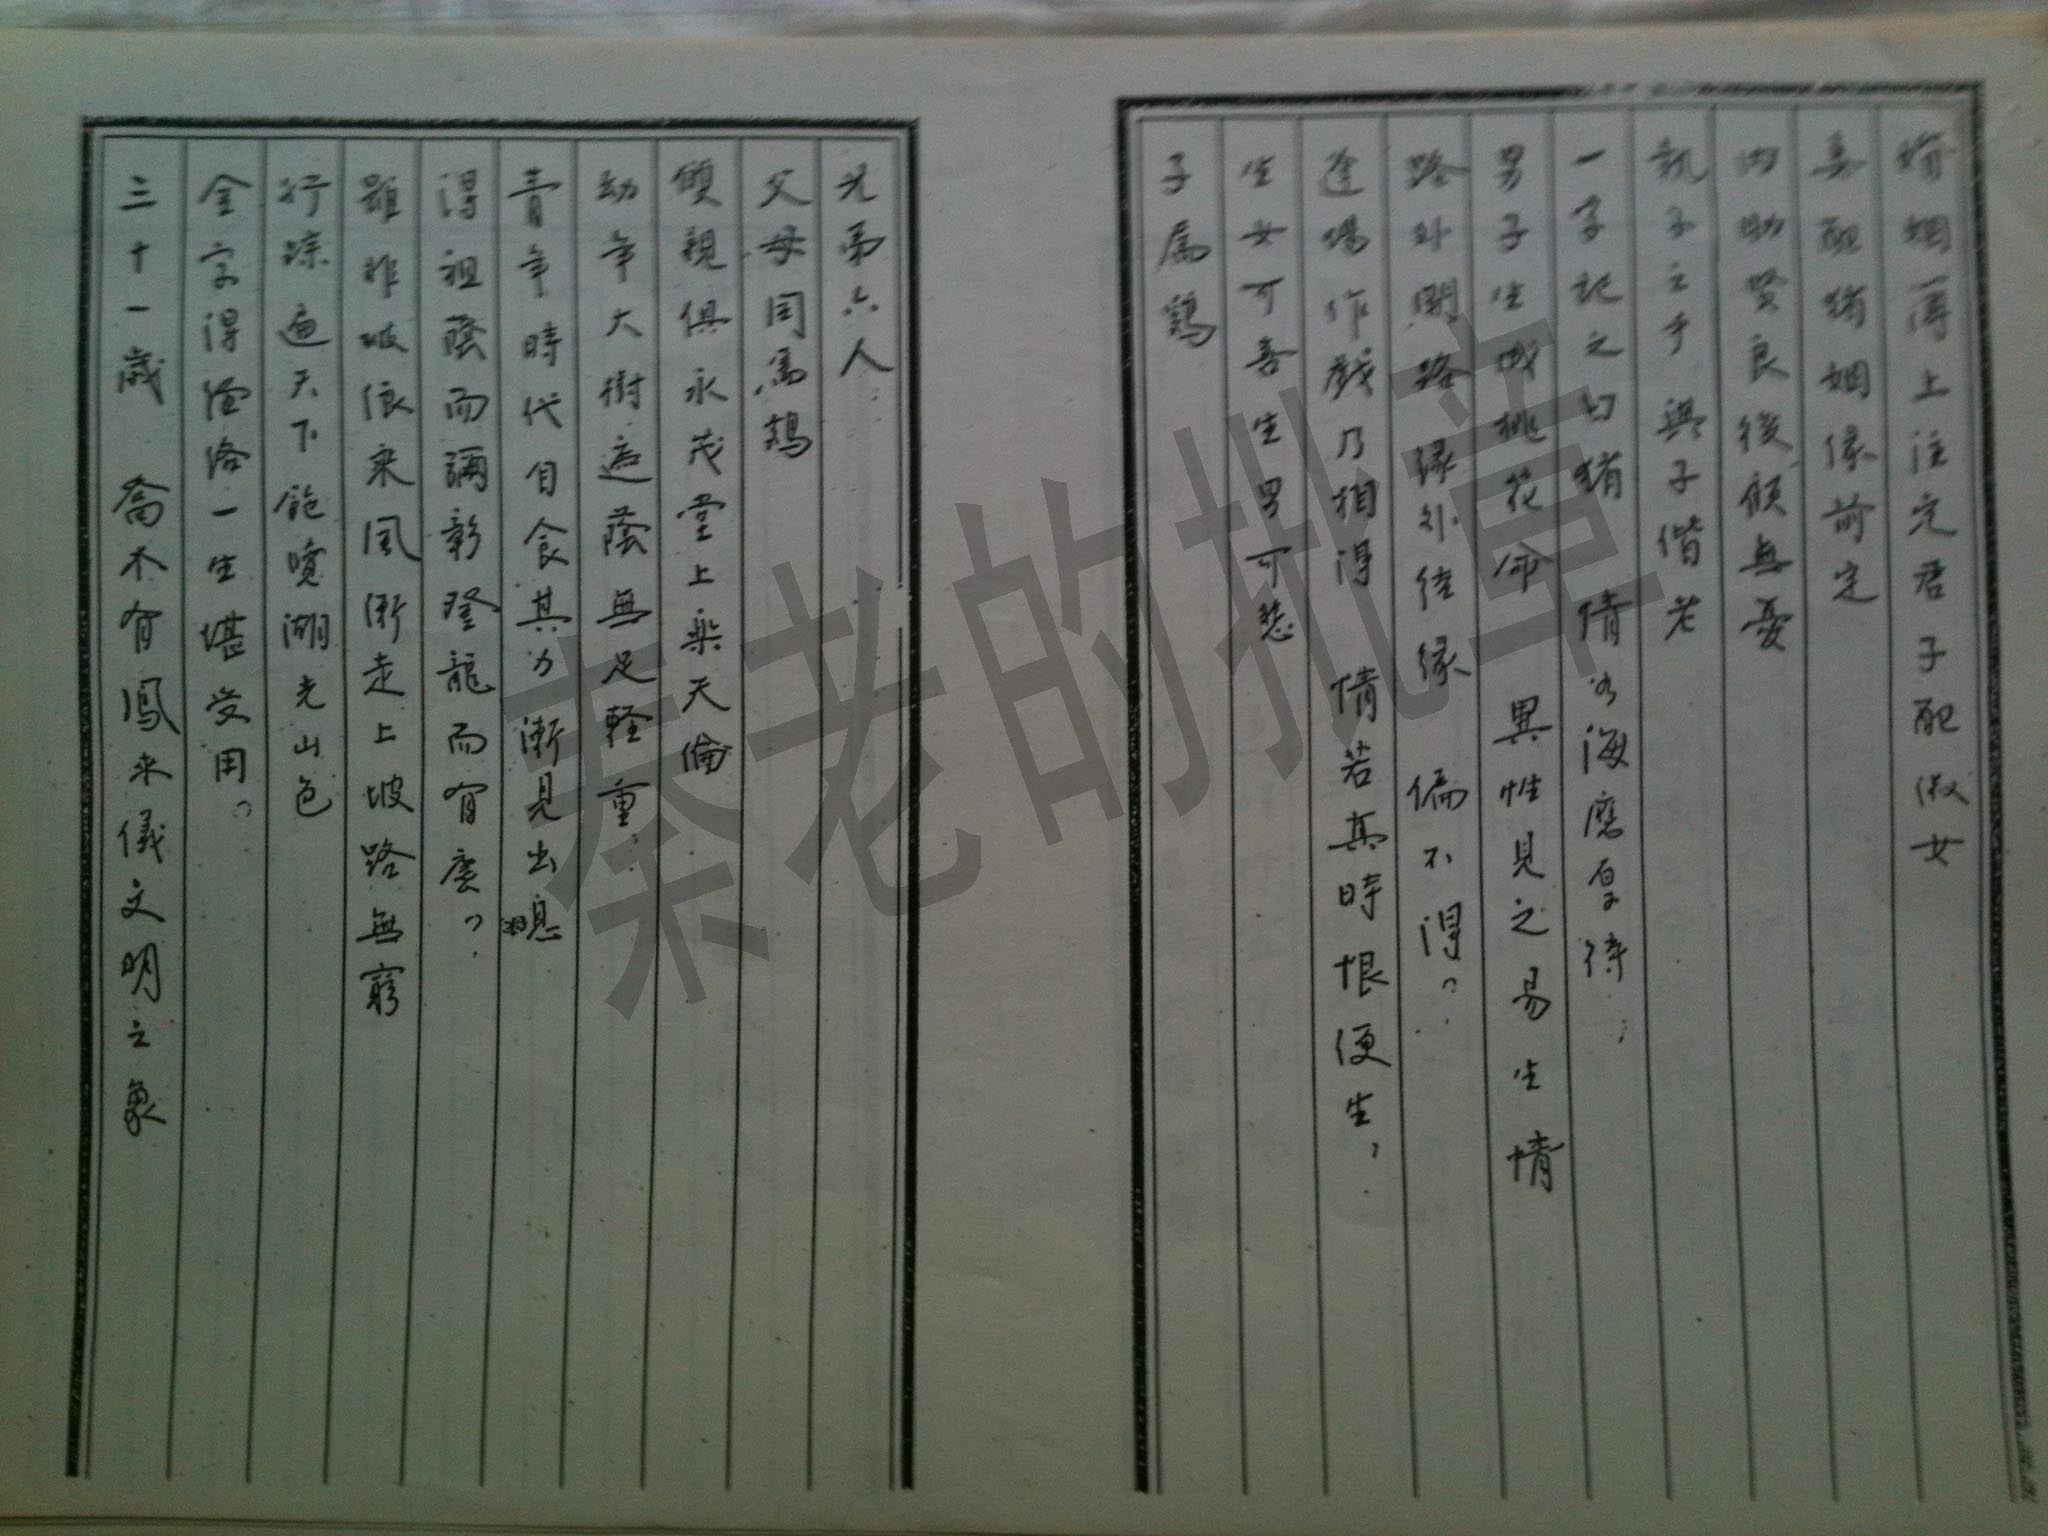 婚姻薄上注定君子配淑女
妻配猪姻缘前定
内助贤良後顾無憂
執子之手 與子偕老
一字記之曰猪 情為海應皇待
男子生成桃花命 異性見之易生情
路外開路 缘外结缘 偏不得。
逢場作戲乃相得 情若真時恨便生,
生女可喜 生男可愁
子属鷄
兄弟六人
父母同属鷄
雙親俱永茂堂上樂天倫
幼年大樹遮蔭無足輕重
青年時代自食其力漸見出息
得祖蔭而彌彰登龍而有慶。
雖非披浪乘風漸走上坡路無窮
行踪遍天下飽覽湖光山色
金字得 一生堪受用。
三十一歲 喬木有鳳來儀文明之象
秦老的批章